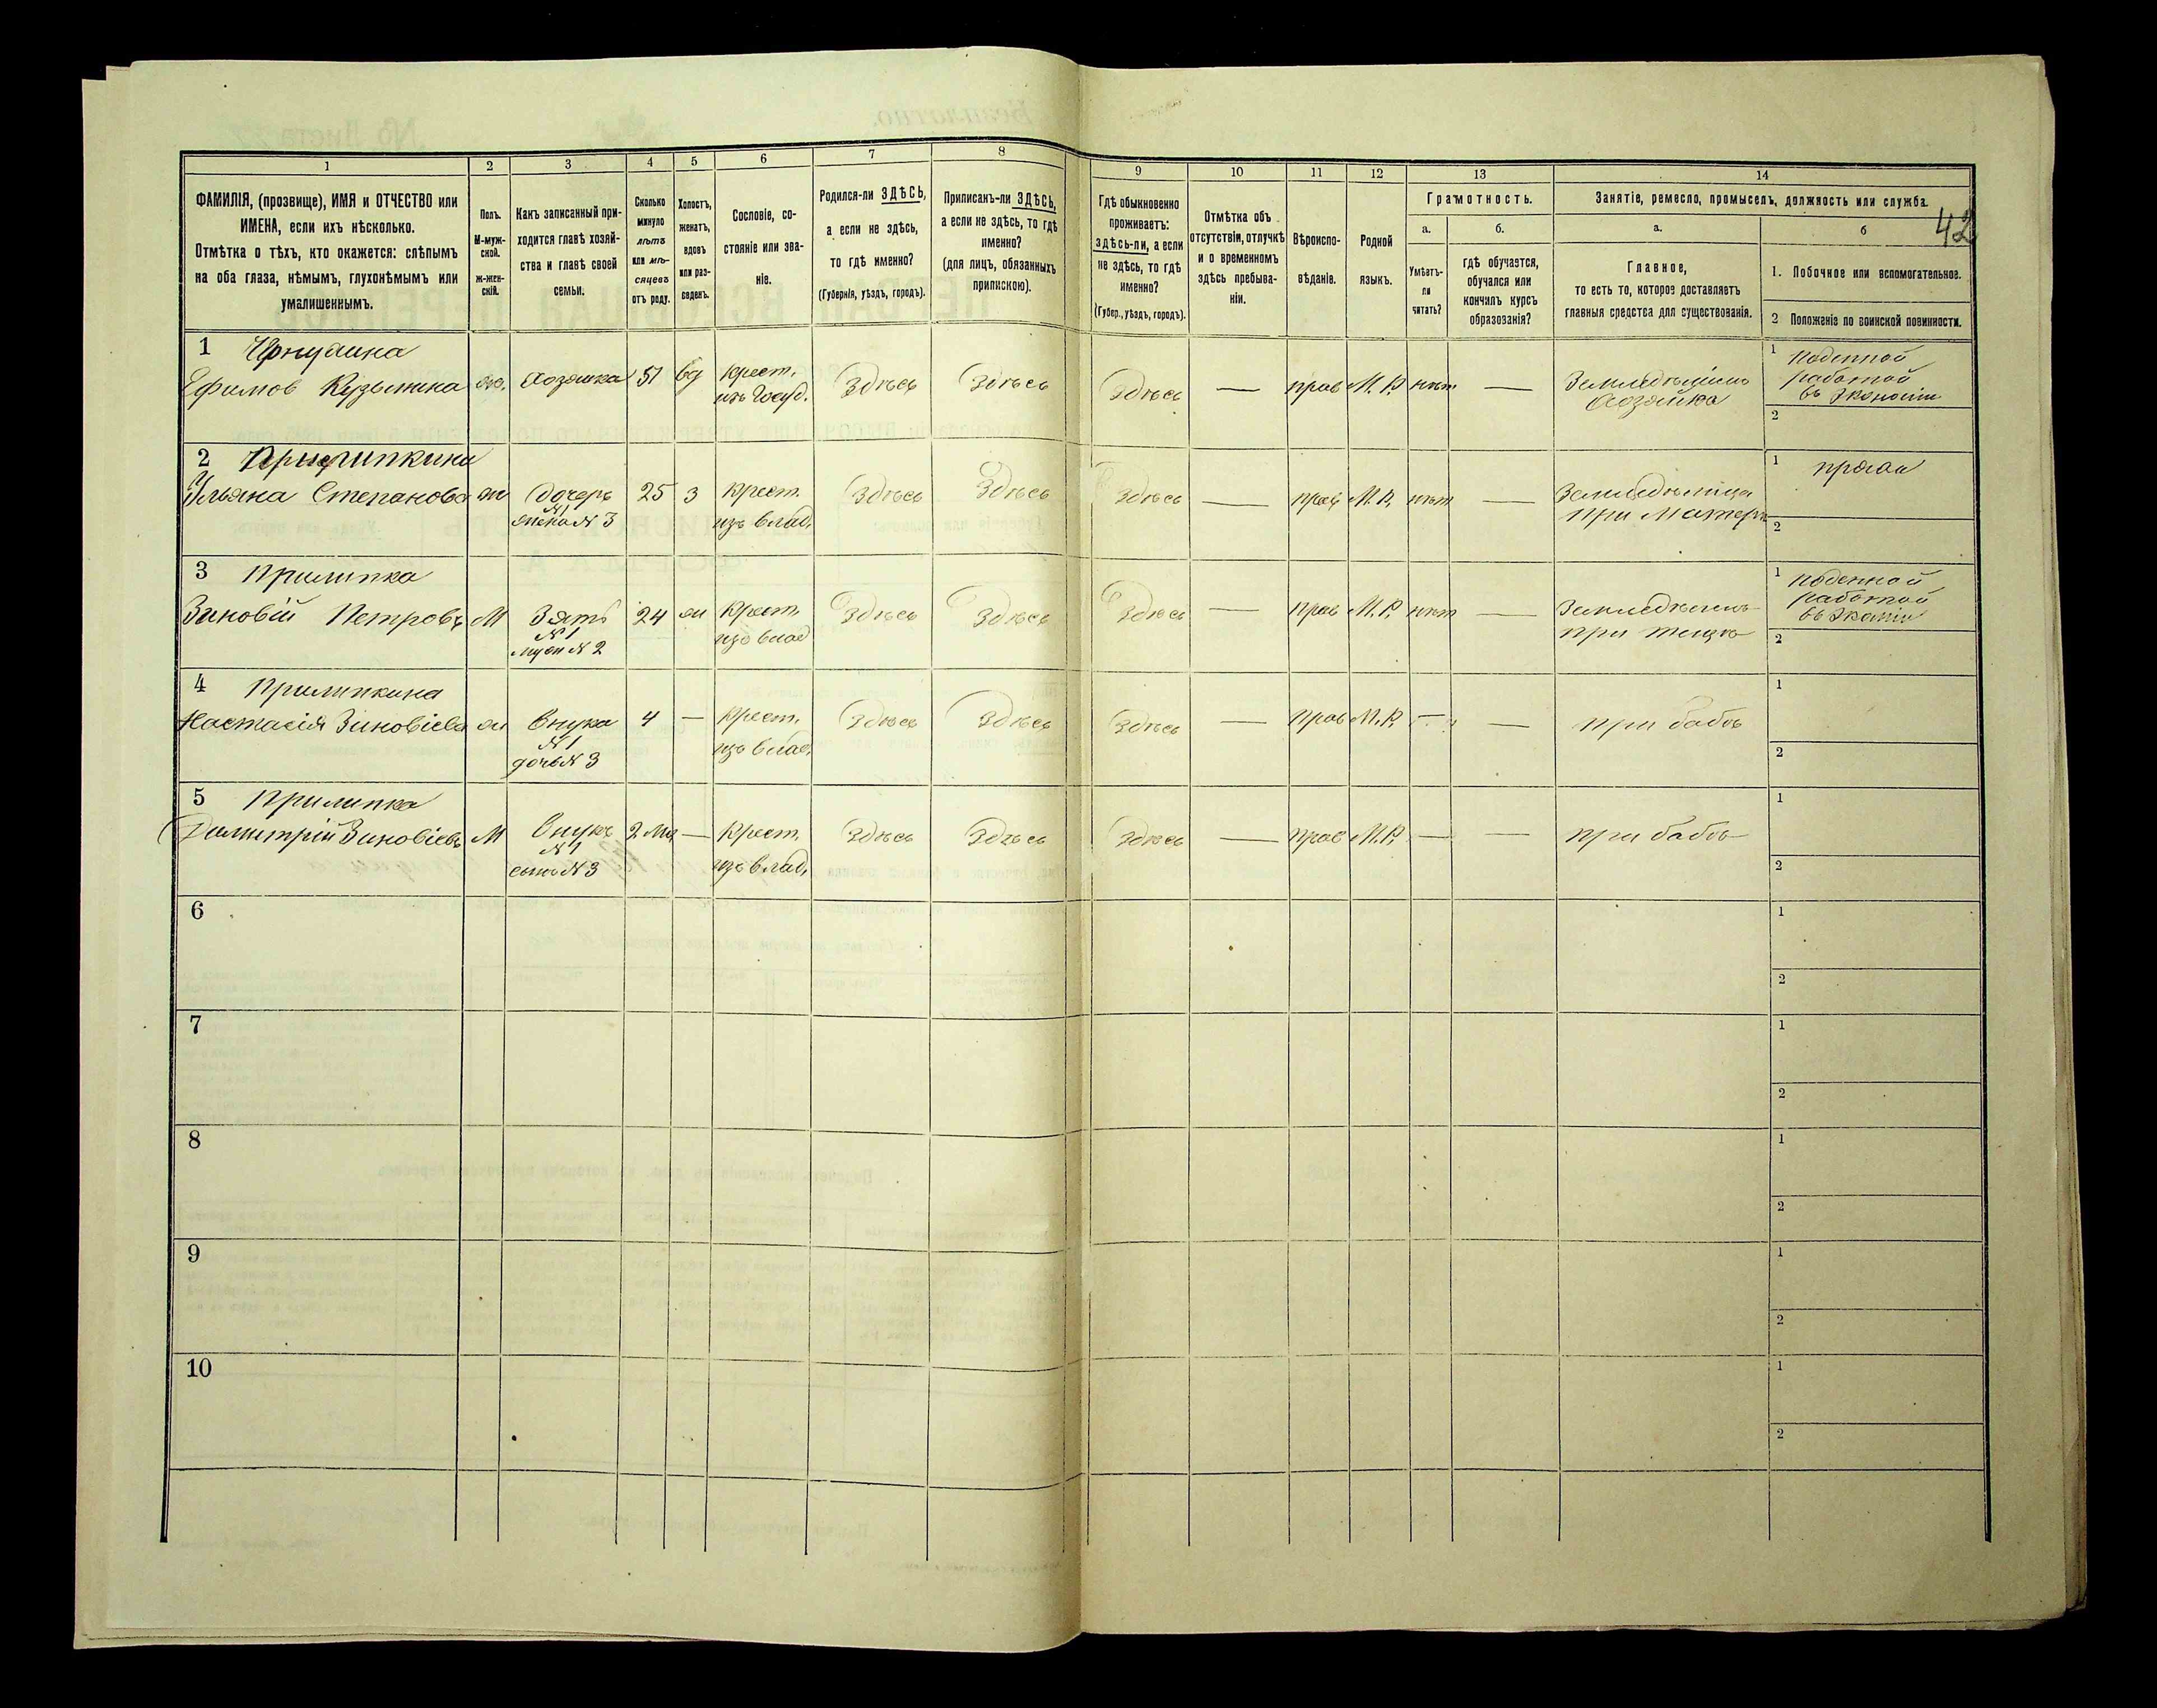 1 2 3 4 5 6 7 8 9 10 11 12 13 14
ФАМИЛІЯ, (прозвище), ИМЯ и ОТЧЕСТВО или
ИМЕНА, если ихъ нѣсколько.
Отмѣтка о тѣхъ, кто окажется: слѣпымъ
на оба глаза, нѣмымъ, глухонѣмымъ или
умалишеннымъ.
Полъ.
М-муж-
ской.
ж-жен-
скій.
Какъ записанный при-
ходится главѣ хозяй-
ства и главѣ своей
семьи.
Сколько
минуло
лѣтъ
или мѣ-
сяцевъ
отъ роду.
Холостъ,
женатъ,
вдовъ
или раз-
веденъ.
Сословіе, со-
стояніе или зва-
ніе.
Родился-ли ЗДѢСЬ,
а если не здѣсь,
то гдѣ именно?
(Губернія, уѣздъ, городъ).
Приписанъ-ли ЗДѢСЬ,
а если не здѣсь, то гдѣ
именно?
(для лицъ, обязанныхъ
припискою).
Гдѣ обыкновенно
проживаетъ:
здѣсь-ли, а если
не здѣсь, то гдѣ
именно?
(Губер., уѣздъ, городъ).
Отмѣтка объ
отсутствіи, отлучкѣ
и о временномъ
здѣсь пребыва-
ніи.
Вѣроиспо-
вѣданіе.
Родной
языкъ.
Грамотность.
а.
Умѣетъ-
ли
читать?
б.
гдѣ обучается,
обучался или
кончилъ курсъ
образованія?
Занятіе, ремесло, промыселъ, должность или служба.
42
а.
Главное,
то есть то, которое доставляетъ
главныя средства для существованія.
б
1. Побочное или вспомогательное.
2 Положеніе по воинской повинности.
1
Кузьмина
Хозяйка
51
вд
крест.
изъ Госуд.
Здѣсь
Здѣсь
Здѣсь
—
прав
М. Р.
нѣт
—
Хозяйка
1 поденной
работой
въ Экономіи
2
2
Ульяна Степанова
ж
дочерь
№ 1
жена № 3
25
З
крест.
изъ влад.
Здѣсь
Здѣсь
Здѣсь
—
прав
М. Р.
нѣт
—
при Матери
1 прядь
2
3 Прилипка
Зиновій Петровъ
М
Зять
№ 1
мужъ № 2
24
ж
крест.
изъ влад
Здѣсь
Здѣсь
Здѣсь
—
прав
М. Р.
нѣт
—
при тещѣ
1 поденной
работой
2
4 Прилипкина
Настасія Зиновіева
ж
внука
№ 1
дочь № 3
4
—
крест.
изъ влад.
Здѣсь
Здѣсь
Здѣсь
—
прав
М. Р.
—
—
при бабѣ
1
2
5 Прилипка
Димитрій Зиновіевъ
М
внукъ
№ 1
сынъ № 3
2 мц
—
крест.
изъ влад.
Здѣсь
Здѣсь
Здѣсь
—
прав
М. Р.
—
—
при бабѣ
1
2
6
1
2
7
1
2
8
1
2
9
1
2
10
1
2